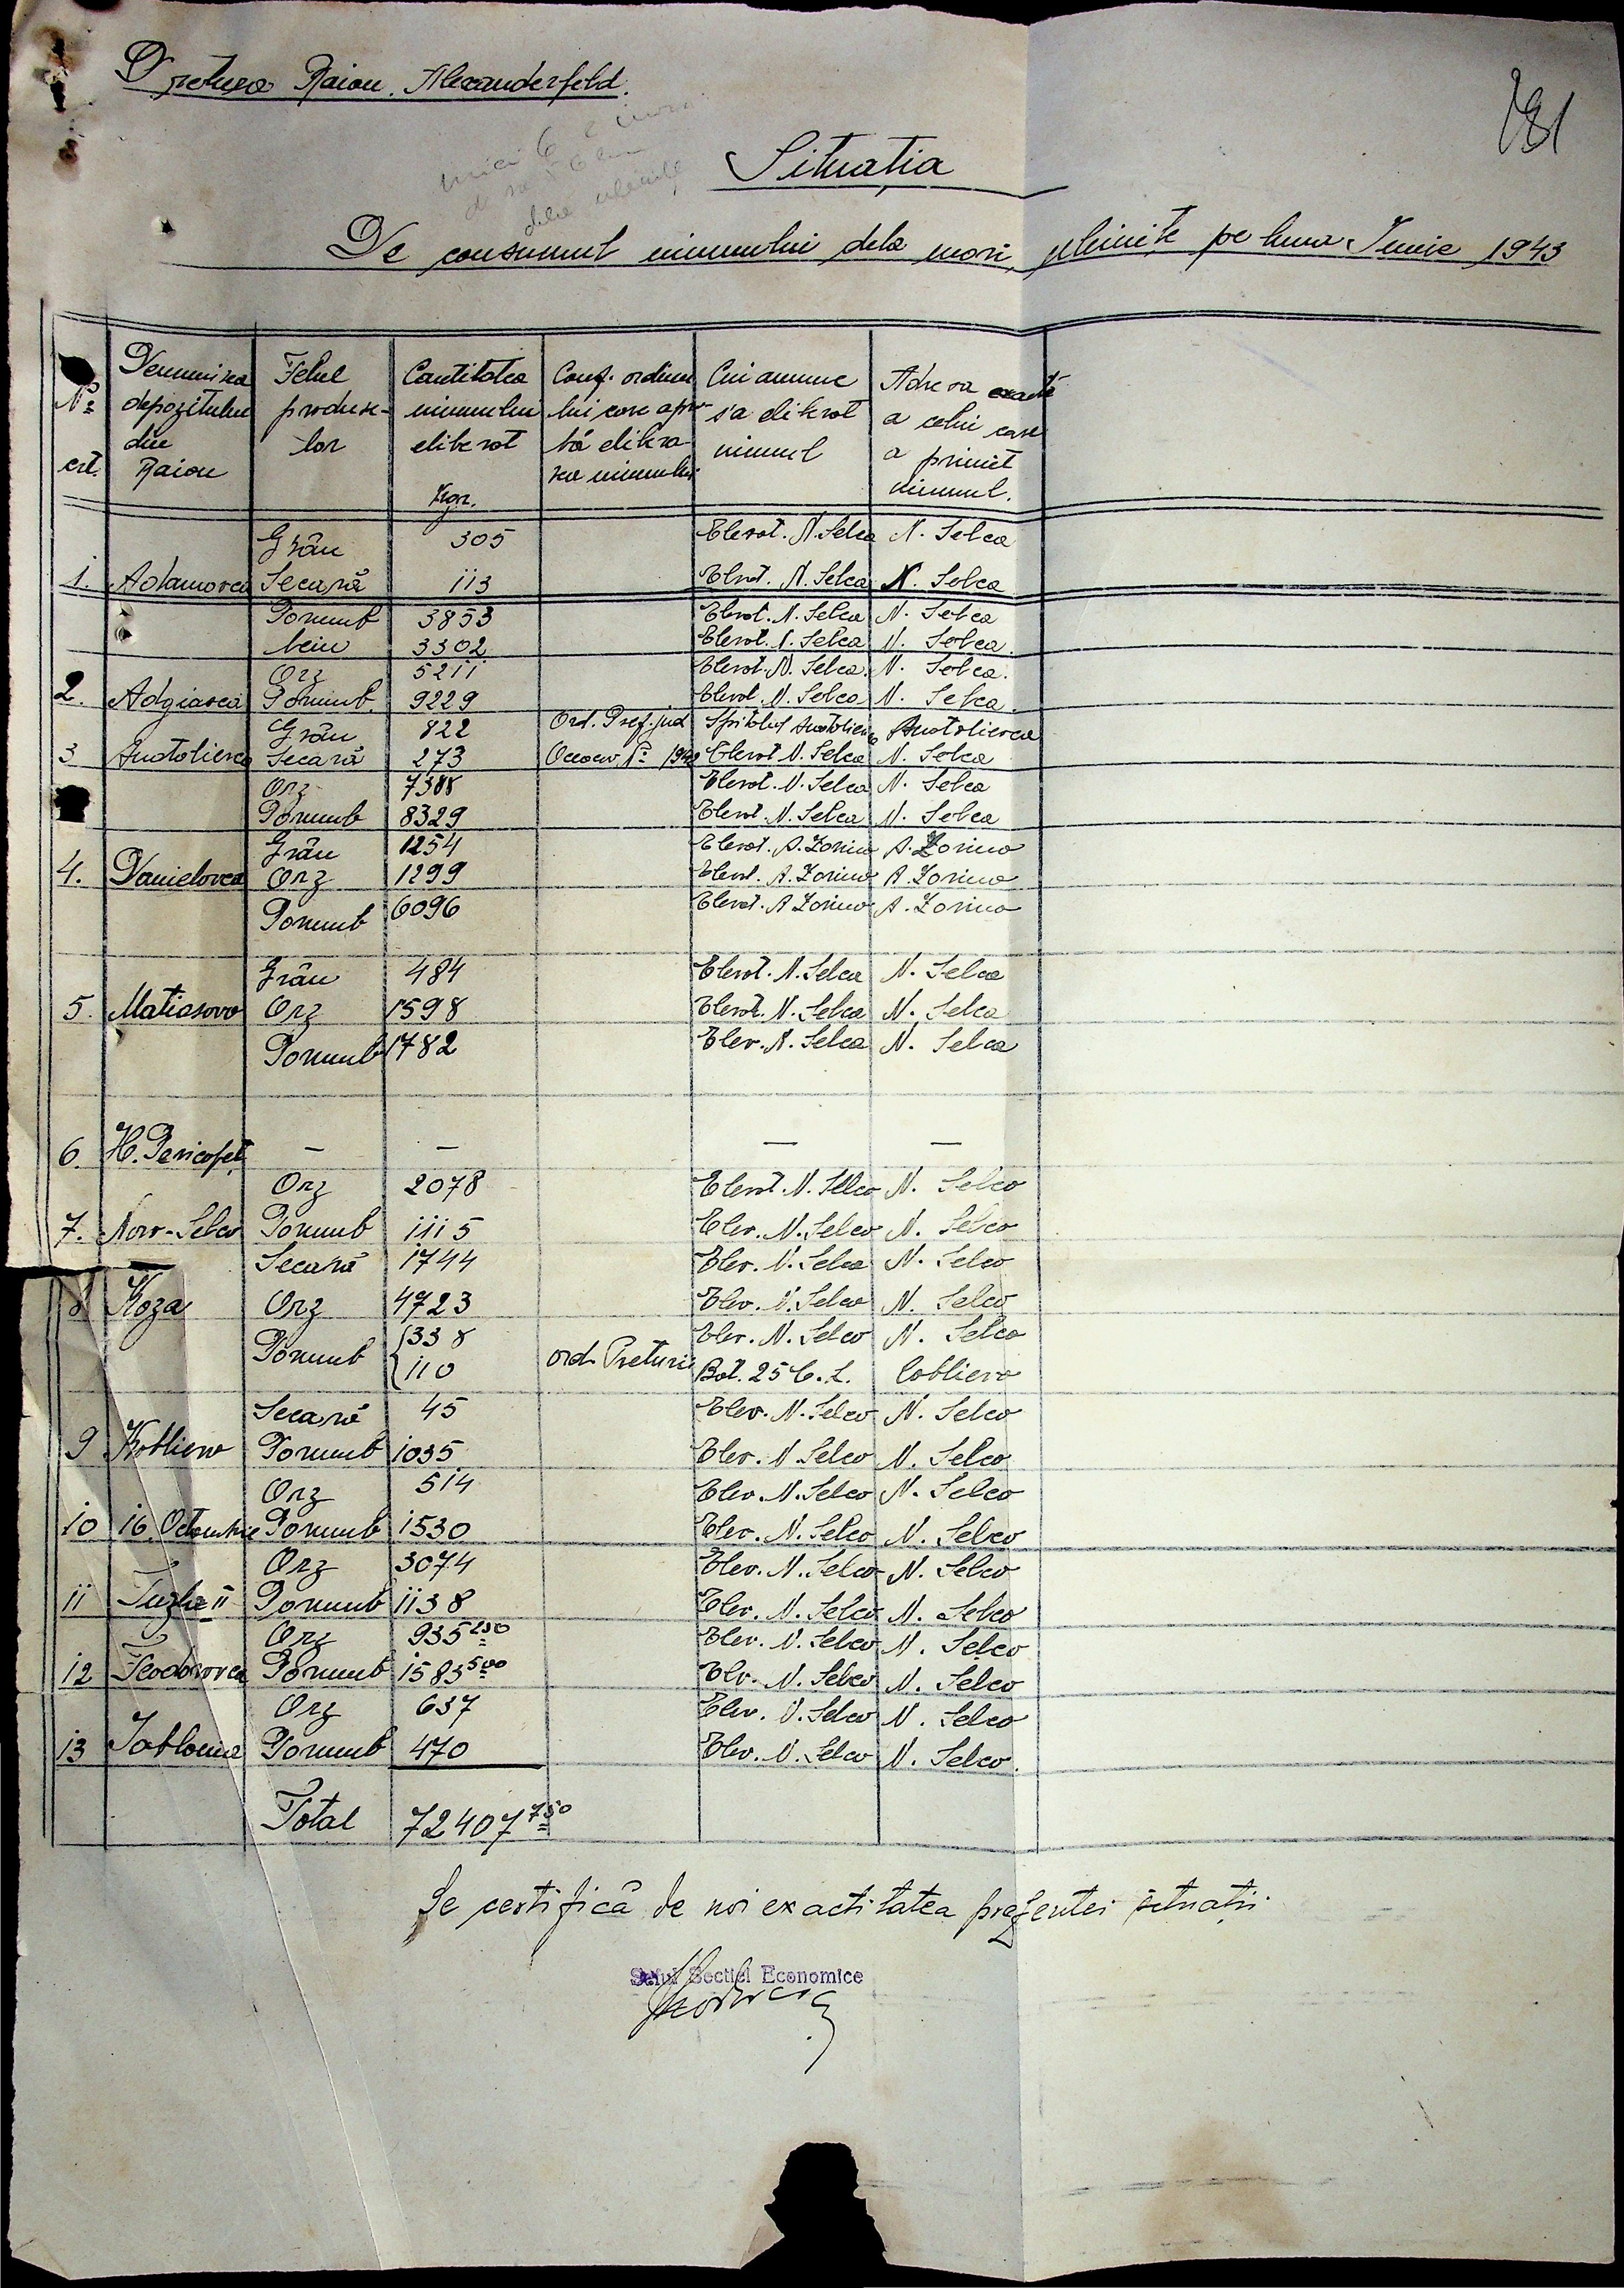 Pretura Raion. Alexanderfeld.
781
Situația
De consumul uiumului dela mori, plinite pe luna Iunie 1943
No crt.
Denumirea depozitului din Raion
Felul produselor
Cantitatea uiumului eliberat Kgr.
Conf. ordinului care aprobă eliberarea uiumului
Cui anume s'a eliberat uiumul
Adresa exactă a celui care a primit uiumul.
Grâu 305 Elevat. N. Selca N. Selca
1. Adamovca Secară 113 Elevat. N. Selca N. Selca
Porumb 3853 Elevat. N. Selca N. Selca
Meiu 3302 Elevat. N. Selca N. Selca.
Orz 5211 Elevat. N. Selca. N. Selca.
2. Adgiasca Porumb. 9229 Elevat. N. Selca N. Selca.
Grâu 822 Ord. Pref. jud Spitalul Anatolievca Anatolievca
3 Anatolievca Secară 273 Oceacov No 1942 Elevat N. Selca N. Selca
Orz 7388 Elevat. N. Selca N. Selca
Porumb 8329 Elevat. N. Selca N. Selca
Grâu 1254 Elevat. A. Zorino A. Zorino
4. Danielovca Orz 1299 Elevat. A. Zorino A. Zorino
Porumb 6096 Elevat. A Zorino A. Zorino
Grâu 484 Elevat. N. Selca N. Selca
5. Matiasovo Orz 1598 Elevat. N. Selca N. Selca
Porumb 1782 Elev. N. Selca N. Selca
6. H. Pericopet. — — — —
Orz 2078 Elevat. N. Selco N. Selco
7. Nov-Selco Porumb 1115 Elev. N. Selco N. Selco
Secară 1744 Elev. N. Selca N. Selco
8 Koza Orz 4723 Elev. N. Selco N. Selco
Porumb 338 Elev. N. Selco N. Selca
110 ord. Preturii Bat. 25 C. L. Coblievo
Secară 45 Elev. N. Selco N. Selco
9 Koblievo Porumb 1035 Elev. N Selco N. Selco
Orz 514 Elev. N. Selco N. Selco
10 16 Octombrie Porumb 1530 Elev. N. Selco N. Selco
Orz 3074 Elev. N. Selco N. Selco
11 Tuzla II Porumb 1138 Elev. N. Selco N. Selco
Orz 935 250 Elev. N. Selco N. Selco
12 Feodorovca Porumb 1583 500 Elv. N. Selco N. Selco
Orz 637 Elev. N. Selco N. Selco
13 Iablonia Porumb 470 Elev. N. Selco N. Selco.
Total 72407 750
Se certifică de noi exactitatea prezentei situații
Șeful Secției Economice